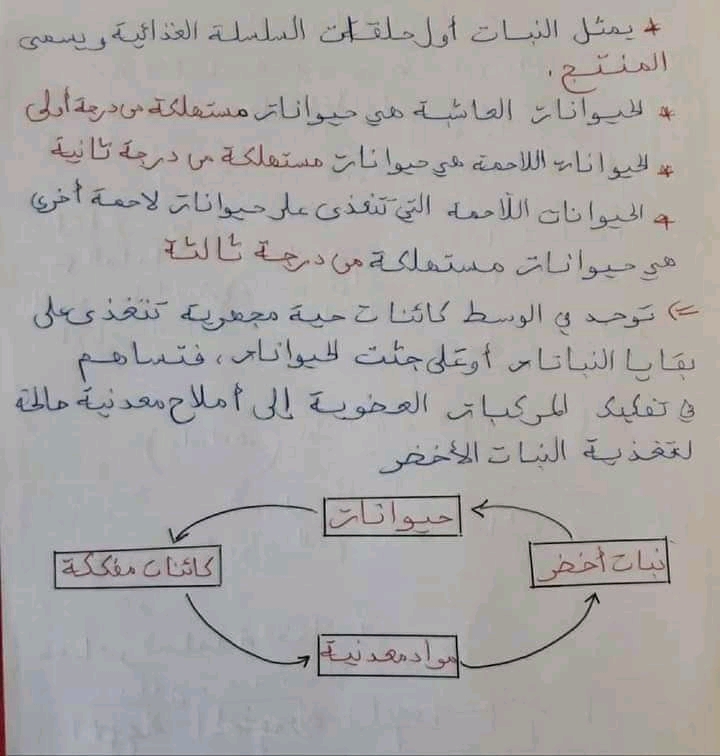 * يمثل النبات أول حلقات السلسلة الغذائية ويسمى
المنتج.
* الحيوانات العاشبة هي حيوانات مستهلكة من درجة أولى
* الحيوانات اللاحمة هي حيوانات مستهلكة من درجة ثانية
* الحيوانات اللاحمة التي تتغذى على حيوانات لاحمة أخرى
هي حيوانات مستهلكة من درجة ثالثة
<= توجد في الوسط كائنات حية مجهرية تتغذى على
بقايا النباتات أو على جثث الحيوانات، فتساهم
في تفكيك المركبات العضوية إلى أملاح معدنية صالحة
لتغذية النبات الأخضر
حيوانات
نبات أخضر
كائنات مفككة
مواد معدنية